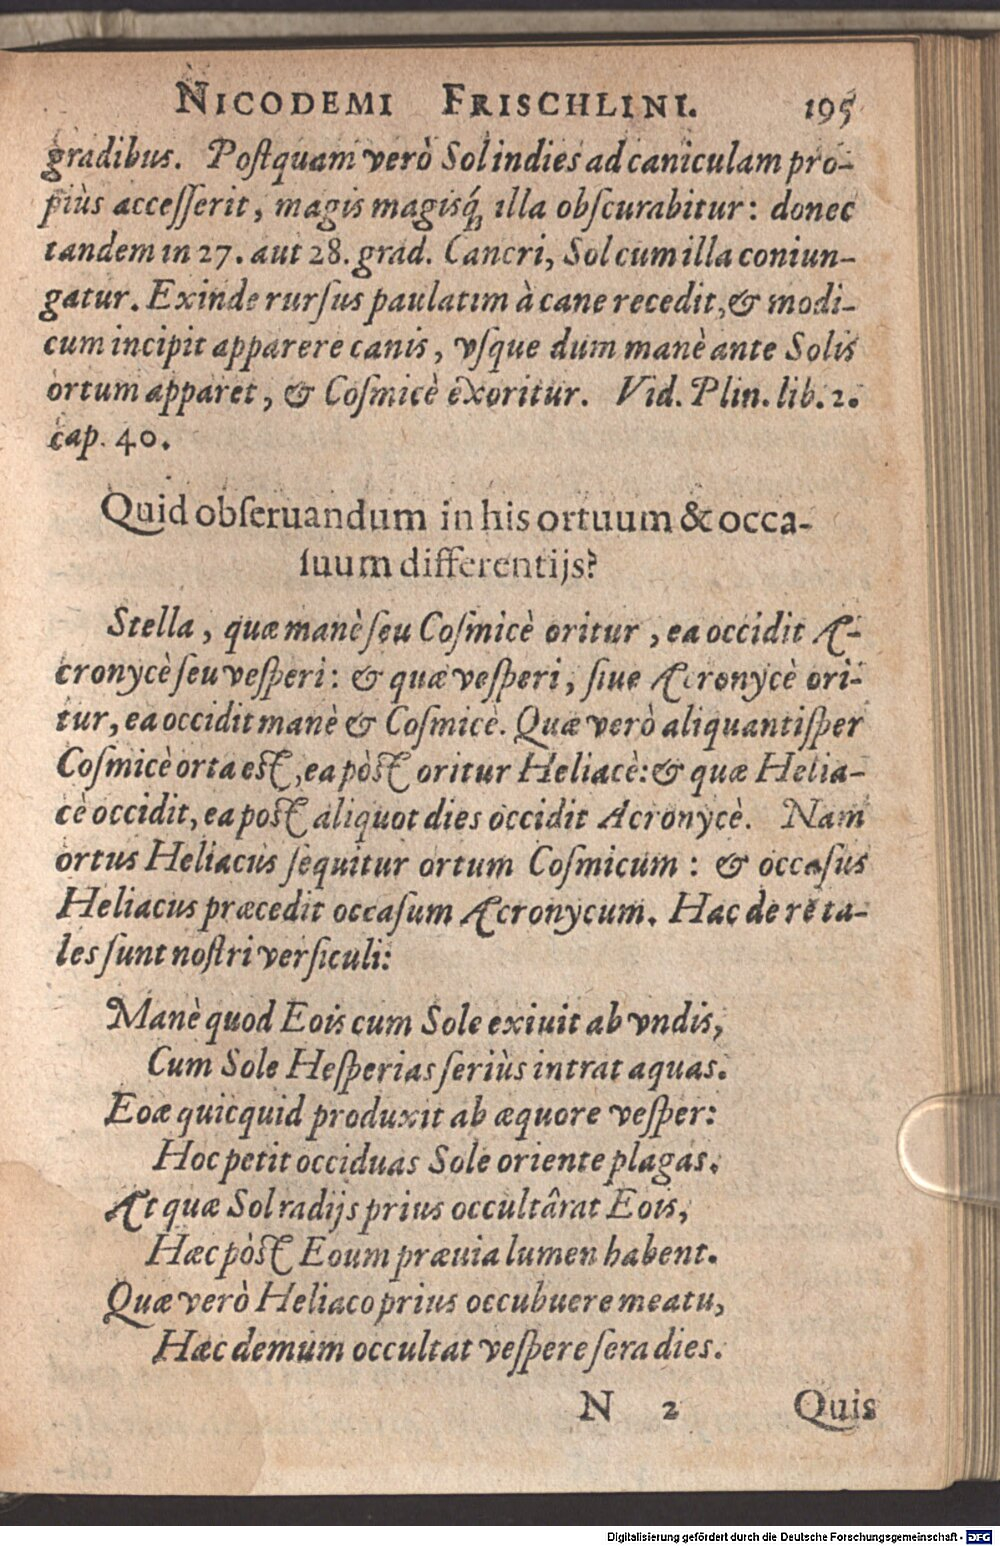 NICODEMI FRISCHLINI. 195
gradibus. Postquam verò Sol indies ad caniculam pro-
piùs accesserit, magis magisq́; illa obscurabitur: donec
tandem in 27. aut 28. grad. Cancri, Sol cum illa coniun-
gatur. Exinde rursus paulatim à cane recedit, & modi-
cum incipit apparere canis, vsque dum manè ante Solis
ortum apparet, & Cosmicè exoritur. Vid. Plin. lib. 2.
cap. 40.
Quid obseruandum in his ortuum & occa-
suum differentijs?
Stella, quæ manè seu Cosmicè oritur, ea occidit A-
cronycè seu vesperi: & quæ vesperi, siue Acronycè ori-
tur, ea occidit manè & Cosmicè. Quæ verò aliquantisper
Cosmicè orta est, ea pòst oritur Heliacè: & quæ Helia-
cè occidit, ea post aliquot dies occidit Acronycè. Nam
ortus Heliacus sequitur ortum Cosmicum: & occasus
Heliacus præcedit occasum Acronycum. Hac de re ta-
les sunt nostri versiculi:
Manè quod Eois cum Sole exiuit ab vndis,
Cum Sole Hesperias seriùs intrat aquas.
Eoæ quicquid produxit ab æquore vesper:
Hoc petit occiduas Sole oriente plagas.
At quæ Sol radijs prius occultârat Eois,
Hæc pòst Eoum præuia lumen habent.
Quæ verò Heliaco prius occubuere meatu,
Hæc demum occultat vespere sera dies.
N 2 Quis
Digitalisierung gefördert durch die Deutsche Forschungsgemeinschaft - DFG